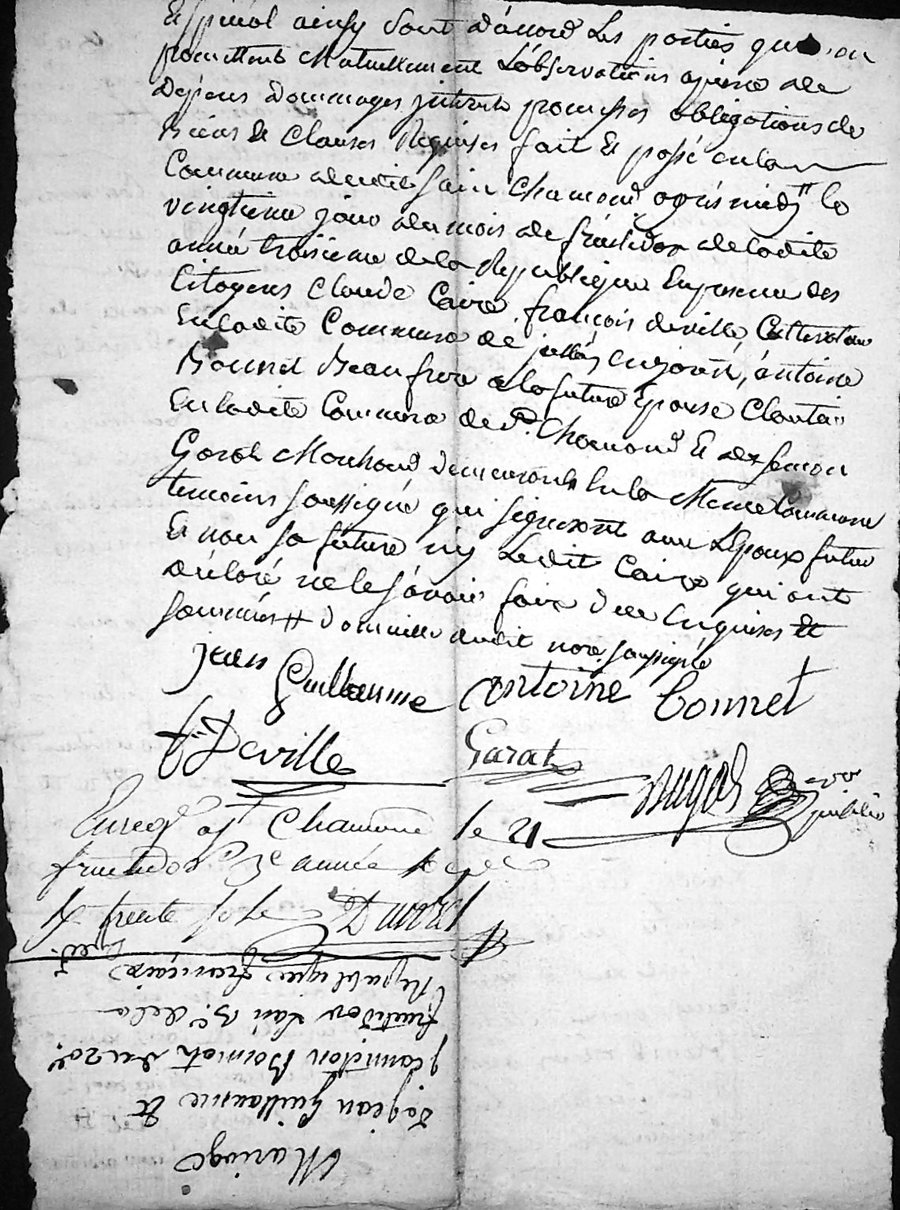 Especial ainsy sont d'accord Les parties qui
promettent Mutuellement L'observation a peine de
depens Dommages jnterets promesses obligations de
Biens Et Clauses Requises fait Et passé en la
Commune dudit sain Chamond après midy # le
vingtieme jour du mois de fructidor de ladite
année troisieme de la Republique En presence des
Citoyens Claude Caire, françois deville, Cultivateur
En ladite Commune de en jarret, antoine
Bonnet Beau frere a la future Epouse
En ladite Commune de St. Chamond Et de
Garat Marchand demeurants En la Meme Commune
temoins soussigné qui signeront avec L'Epoux futur
Et non sa future ny Ledit Caire qui ont
déclaré ne le savoir faire De ce Enquises Et
sommés # Domicille dudit nore. soussigné
jean Guillaume antoine bonnet
fs. Deville Garat
Dugas nore public
Enregé. a St Chamond le 21
fructidor 3e année
Rx trente sols
Mariage
De jean Guillaume Et
Bonnet Du 20
fructidor L'an 3e. de la
Republique française